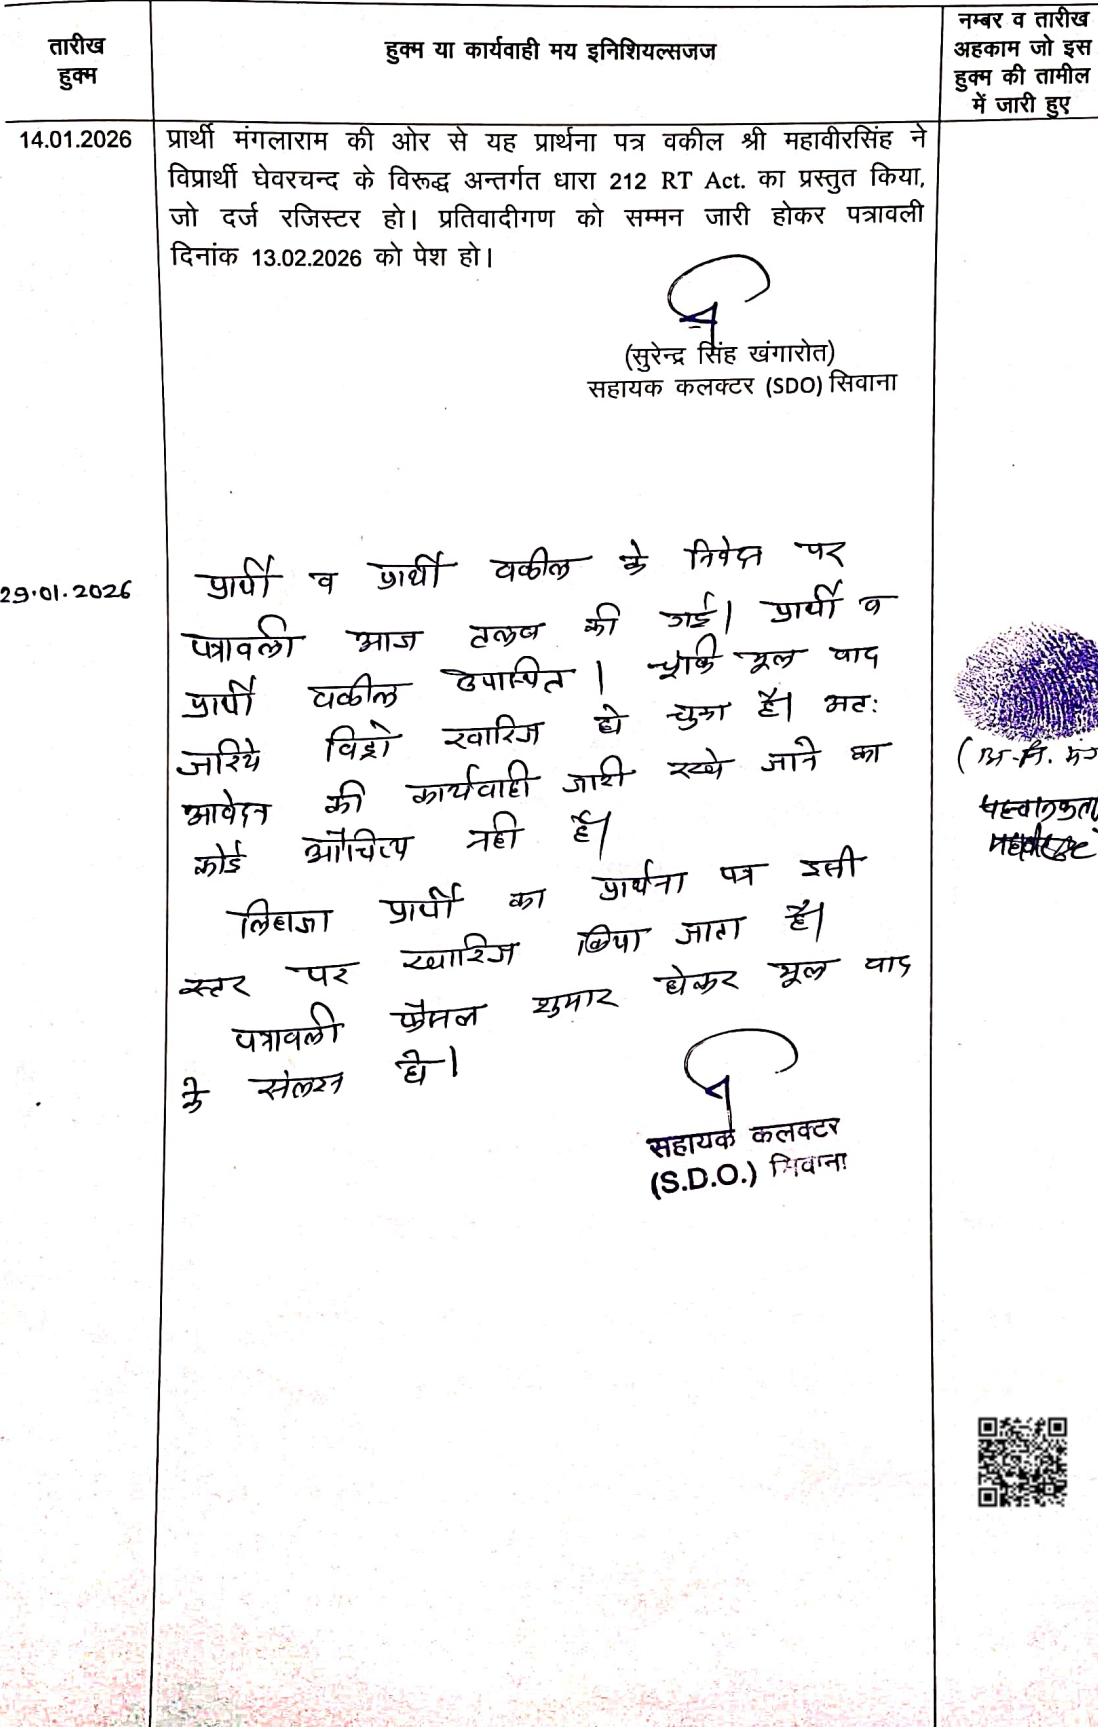 तारीख
हुक्म
हुक्म या कार्यवाही मय इनिशियल्सजज
नम्बर व तारीख
अहकाम जो इस
हुक्म की तामील
में जारी हुए
14.01.2026
प्रार्थी मंगलाराम की ओर से यह प्रार्थना पत्र वकील श्री महावीरसिंह ने
विप्रार्थी घेवरचन्द के विरूद्ध अन्तर्गत धारा 212 RT Act. का प्रस्तुत किया,
जो दर्ज रजिस्टर हो। प्रतिवादीगण को सम्मन जारी होकर पत्रावली
दिनांक 13.02.2026 को पेश हो।
(सुरेन्द्र सिंह खंगारोत)
सहायक कलक्टर (SDO) सिवाना
29.01.2026
प्रार्थी व प्रार्थी वकील के निवेदन पर
पत्रावली आज तलब की गई। प्रार्थी व
प्रार्थी वकील उपस्थित। चूंकि मूल वाद
जरिये विड्रो खारिज हो चुका है। अतः
आवेदन की कार्यवाही जारी रखे जाने का
कोई औचित्य नही है।
लिहाजा प्रार्थी का प्रार्थना पत्र इसी
स्तर पर खारिज किया जाता है।
पत्रावली फैसल शुमार होकर मूल वाद
के संलग्न हो।
सहायक कलक्टर
(S.D.O.) सिवाना
(अ.नि. मं
पहचानकर्ता